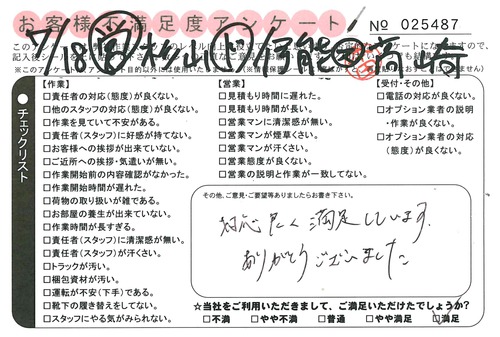 お客様不満足度アンケート
No 025487
7/18 営 杉山 伊能 高崎
チェックリスト
【作業】
□責任者の対応(態度)が良くない。
□他のスタッフの対応(態度)が良くない。
□作業を見ていて不安がある。
□責任者(スタッフ)に好感が持てない。
□お客様への挨拶が出来ていない。
□ご近所への挨拶・気遣いが無い。
□作業開始前の内容確認がなかった。
□作業開始時間が遅れた。
□荷物の取り扱いが雑である。
□お部屋の養生が出来ていない。
□作業時間が長すぎる。
□責任者(スタッフ)に清潔感が無い。
□責任者(スタッフ)が汗くさい。
□トラックが汚い。
□梱包資材が汚い。
□運転が不安(下手)である。
□靴下の履き替えをしてない。
□スタッフにやる気がみられない。
【営業】
□見積もり時間に遅れた。
□見積もり時間が長い。
□営業マンに清潔感が無い。
□営業マンが煙草くさい。
□営業マンが汗くさい。
□営業態度が良くない。
□営業の説明と作業が一致してない。
【受付・その他】
□電話の対応が良くない。
□オプション業者の説明
・作業が良くない。
□オプション業者の対応
(態度)が良くない。
その他、ご意見・ご要望等ありましたらお書き下さい。
対応良く満足しています。
ありがとうございました
☆当社をご利用いただきまして、ご満足いただけたでしょうか？
□不満 □やや不満 □普通 □やや満足 □満足